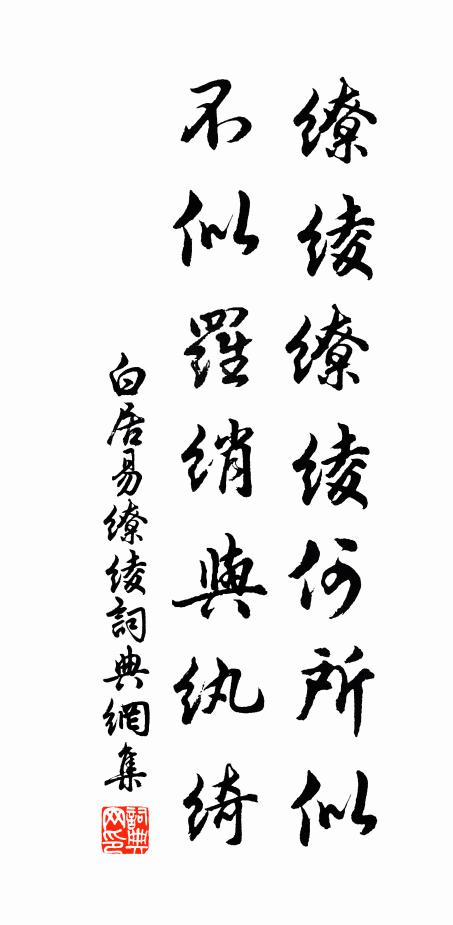 繚綾繚綾何所似
不似羅綃與紈綺
白居易繚綾詞典網集
詞典网印